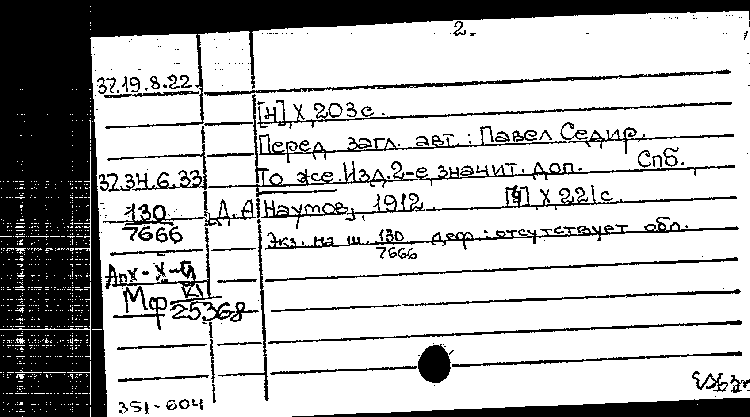 2.
37.19.8.22.
[4], X, 203 с.
Перед загл. авт.: Павел Седир.
37.34.6.33 То же. Изд. 2-е, значит. доп. Спб.,
130 [Д. А. Наумов], 1912. [4], X, 221 с.
7666
Экз. на ш. 130/7666 деф.: отсутствует обл.
Мф
25368
351-604